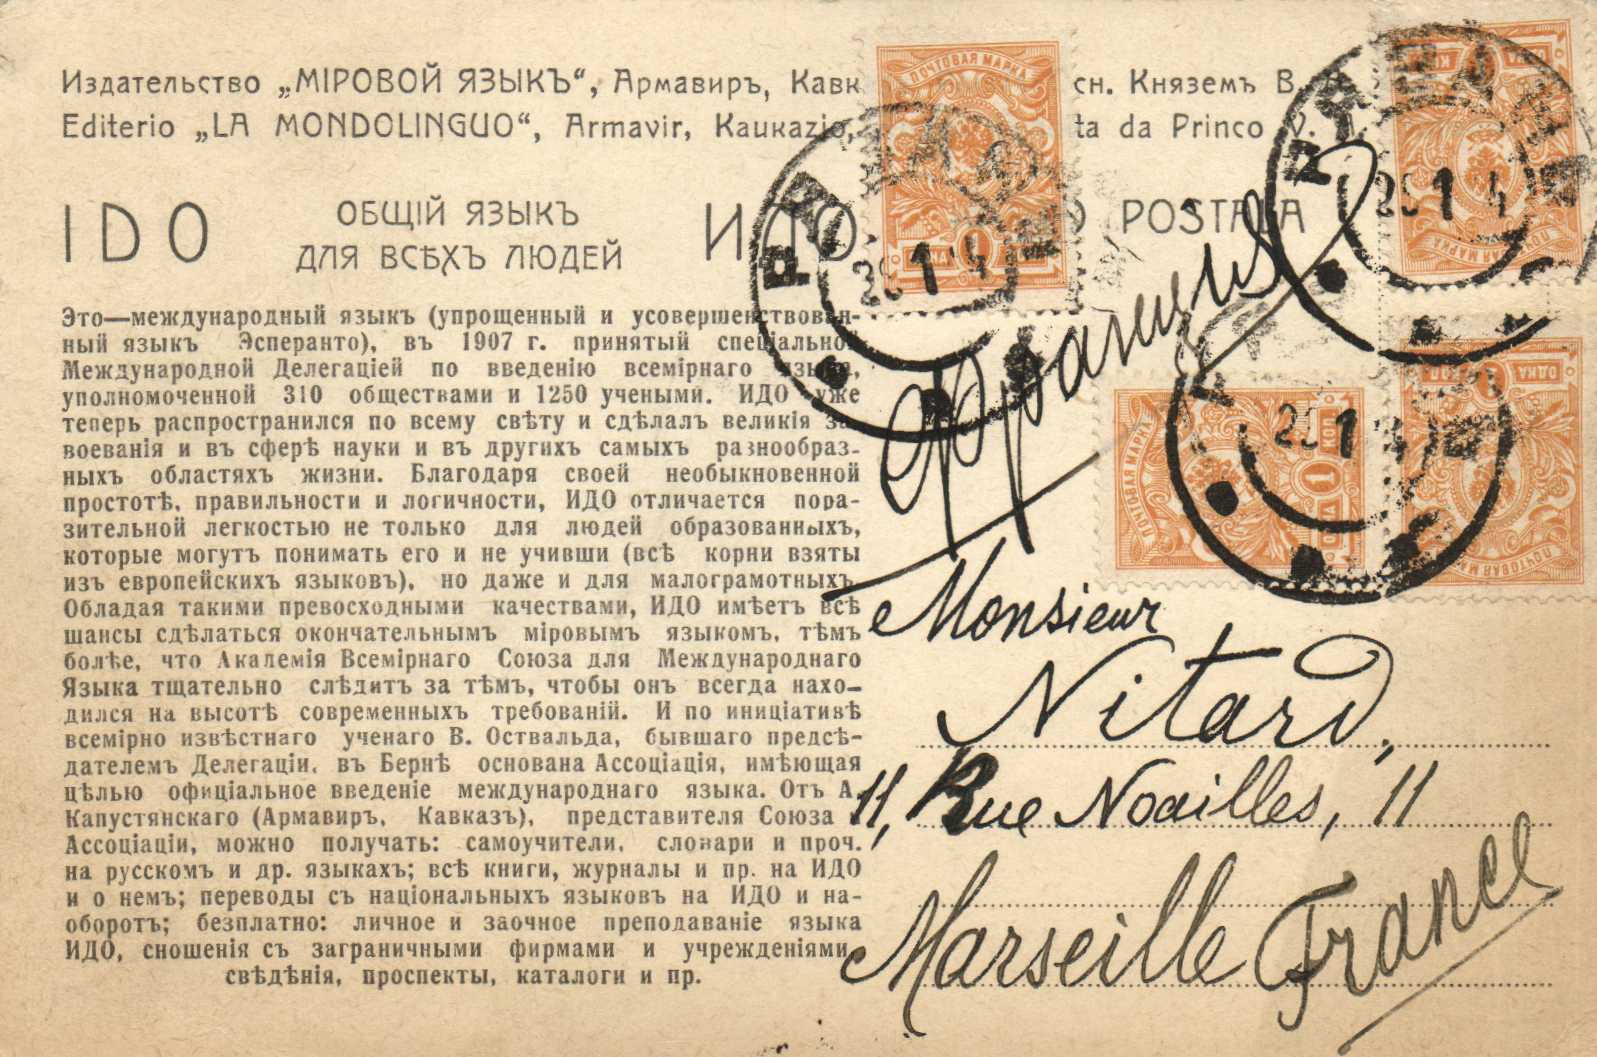 Издательство „МІРОВОЙ ЯЗЫКЪ“, Армавиръ, Кавк сн. Княземъ В.
Editerio „LA MONDOLINGUO“, Armavir, Kaukazio, ta da Princo V.
IDO
ОБЩІЙ ЯЗЫКЪ
ДЛЯ ВСѢХЪ ЛЮДЕЙ
ИДО
POSTALA
Это—международный языкъ (упрощенный и усовершенствован-
ный языкъ Эсперанто), въ 1907 г. принятый спеціальной
Международной Делегаціей по введенію всемірнаго языка,
уполномоченной 310 обществами и 1250 учеными. ИДО уже
теперь распространился по всему свѣту и сдѣлалъ великія за-
воеванія и въ сферѣ науки и въ другихъ самыхъ разнообраз-
ныхъ областяхъ жизни. Благодаря своей необыкновенной
простотѣ, правильности и логичности, ИДО отличается пора-
зительной легкостью не только для людей образованныхъ,
которые могутъ понимать его и не учивши (всѣ корни взяты
изъ европейскихъ языковъ), но даже и для малограмотныхъ.
Обладая такими превосходными качествами, ИДО имѣетъ всѣ
шансы сдѣлаться окончательнымъ міровымъ языкомъ, тѣмъ
болѣе, что Академія Всемірнаго Союза для Международнаго
Языка тщательно слѣдитъ за тѣмъ, чтобы онъ всегда нахо-
дился на высотѣ современныхъ требованій. И по иниціативѣ
всемірно извѣстнаго ученаго В. Оствальда, бывшаго предсѣ-
дателемъ Делегаціи, въ Бернѣ основана Ассоціація, имѣющая
цѣлью официіальное введеніе международнаго языка. Отъ А.
Капустянскаго (Армавиръ, Кавказъ), представителя Союза
Ассоціаціи, можно получать: самоучители, словари и проч.
на русскомъ и др. языкахъ; всѣ книги, журналы и пр. на ИДО
и о немъ; переводы съ національныхъ языковъ на ИДО и на-
оборотъ; безплатно: личное и заочное преподаваніе языка
ИДО, сношенія съ заграничными фирмами и учрежденіями,
свѣдѣнія, проспекты, каталоги и пр.
ПОЧТОВАЯ МАРКА
1
ПОЧТОВАЯ МАРКА
ПОЧТОВАЯ МАРКА
1 КОП
ОДНА
1
ПОЧТОВАЯ МАРКА
Франція
Monsieur
Nitard,
11, Rue Noailles, 11
Marseille France